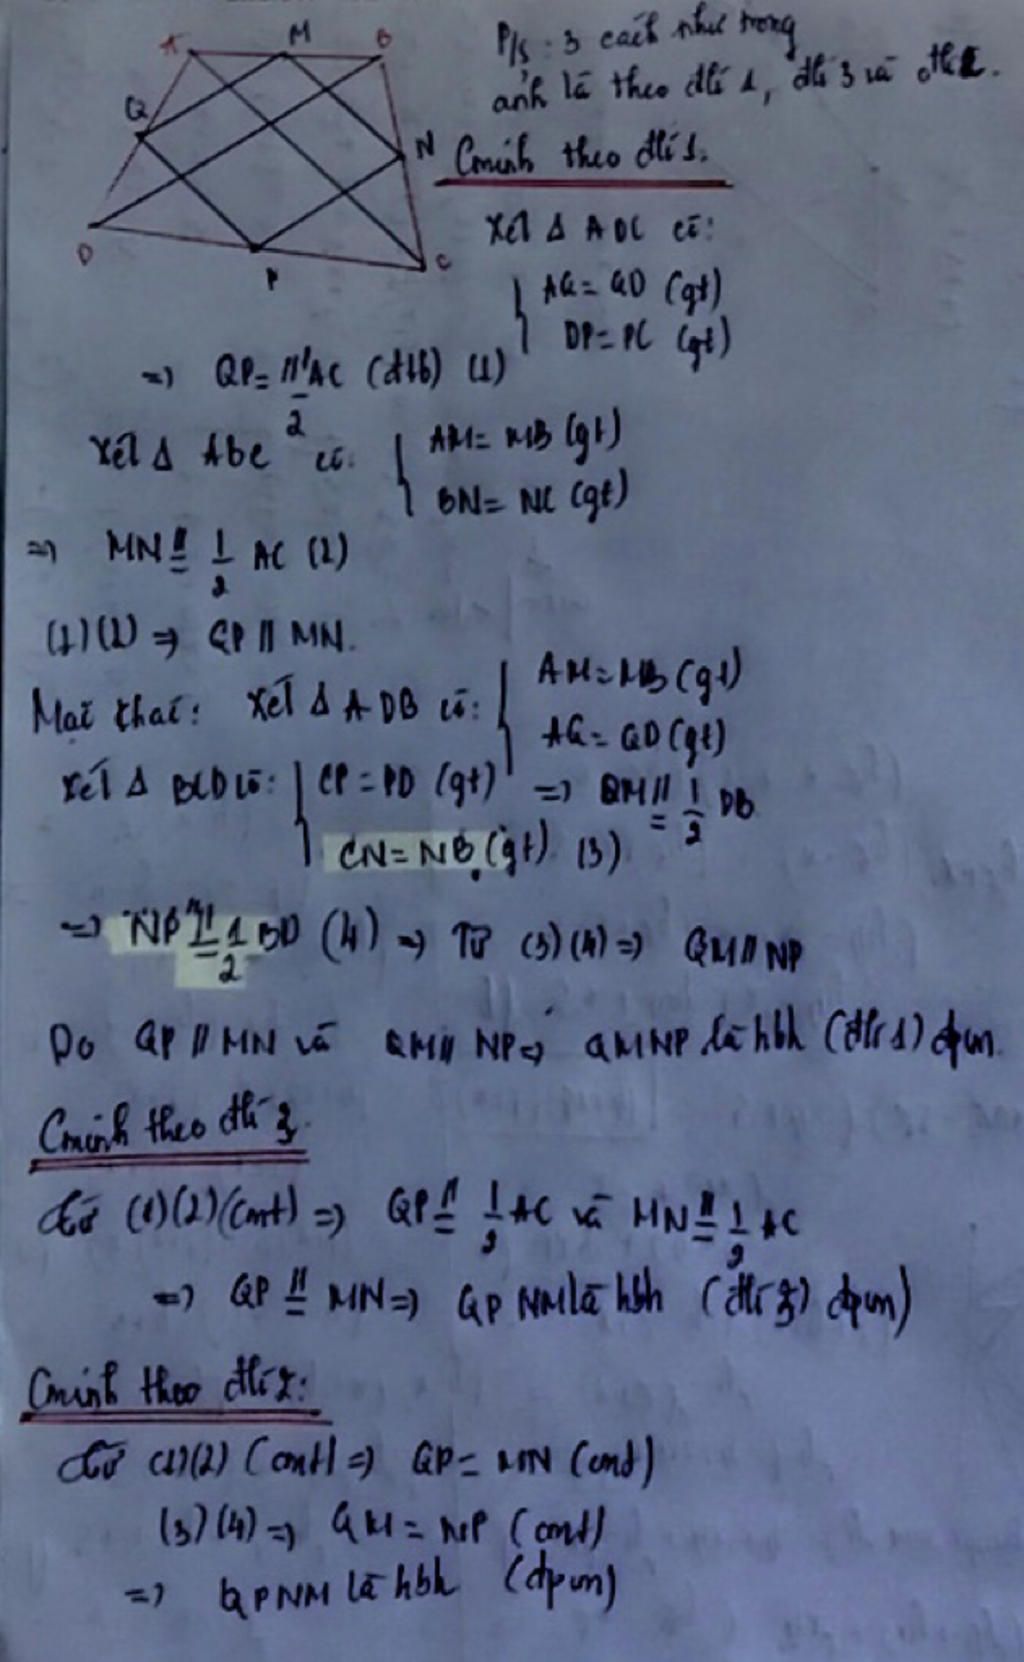 A M B
Q
N
D
P
C
P/s: 3 cách như trong
ảnh là theo dhí 1, dhí 3 và dhí 2.
Cminh theo dhí 1.
Xét Δ ADC có:
AQ = QD (gt)
DP = PC (gt)
=> QP = // 1/2 AC (đtb) (1)
Xét Δ Abc có:
AM = MB (gt)
BN = NC (gt)
=> MN // = 1/2 AC (2)
(1)(2) => QP // MN.
Mặt khác: Xét Δ ADB có:
AM = MB (gt)
AQ = QD (gt)
=> QM // = 1/2 DB
(3)
Xét Δ BCD có:
CP = PD (gt)
CN = NB (gt)
=> NP // = 1/2 BD (4) => Từ (3)(4) => QM // NP
Do QP // MN và QM // NP => QMNP là hbh (dhí 1) đpcm.
Cminh theo dhí 3.
Từ (1)(2)(cmt) => QP // = 1/2 AC và MN // = 1/2 AC
=> QP // = MN => QPNM là hbh (dhí 3) đpcm)
Cminh theo dhí 2:
Từ (1)(2) (cmt) => QP = MN (cmt)
(3)(4) => QM = NP (cmt)
=> QPNM là hbh (đpcm)